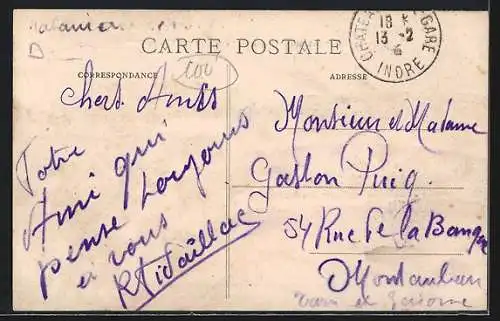 CARTE POSTALE
CORRESPONDANCE
ADRESSE
GARE
18
13 -2
INDRE
Chers Amis
Votre
Ami qui
pense toujours
à vous
Monsieur et Madame
Gaston Puig
54 Rue de la Banque
Montauban
Tarn et Garonne